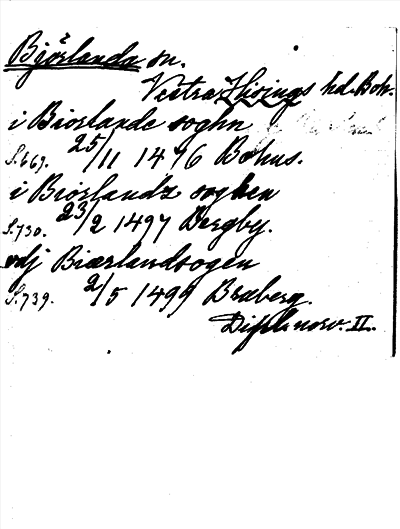 Björlanda sn.
Vestra Hisings hd. Boh.
i Biorlande soghn
S.669. 25/11 1476 Bohus.
i Biorlandz soghen
S.730. 23/2 1497 Bergby.
vdj Biærlandsogen
S.739. 2/5 1499 Braberg.
Dipl. norv. II.